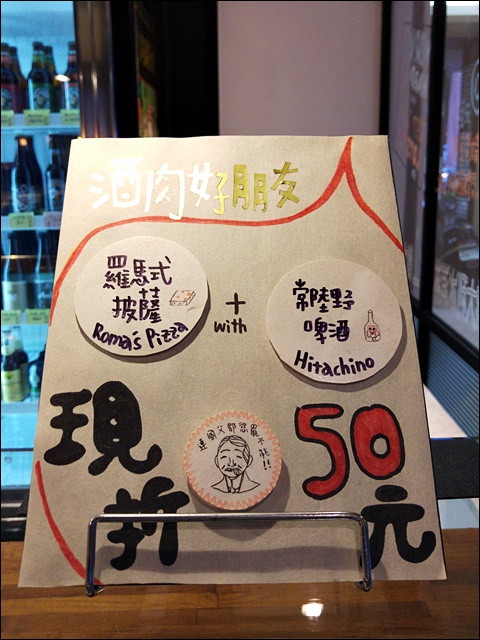 酒肉好朋友
羅馬式
披薩
Roma's Pizza
+
with
常陸野
啤酒
Hitachino
現折
50元
連國父都忍不能!!